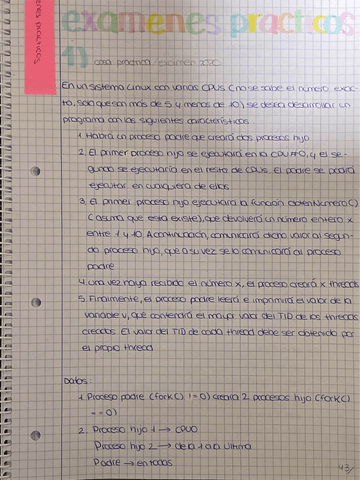 examenes practicos
1) caso práctico / examen 2020
En un sistema Linux con varias CPUs (no se sabe el número exac-
to, solo que son más de 5 y menos de 10), se desea desarrollar un
programa con las siguientes características:
1. Habrá un proceso padre que creará dos procesos hijo
2. El primer proceso hijo se ejecutará en la CPU #0, y el se-
gundo se ejecutaría en el resto de CPUs. El padre se podrá
ejecutar en cualquiera de ellos
3. El primer proceso hijo ejecutará la función obtenNumero()
(asuma que esta existe), que devolverá un número entero x
entre 1 y 10. A continuación, comunicará dicho valor al segun-
do proceso hijo, que a su vez se lo comunicará al proceso
padre
4. Una vez haya recibido el número x, el proceso creará x threads
5. Finalmente, el proceso padre leerá e imprimirá el valor de la
variable v, que contendrá el mayor valor del TID de los threads
creados. El valor del TID de cada thread debe ser obtenido por
el propio thread
Datos:
1. Proceso padre (fork() != 0) creará 2 procesos hijo (fork()
== 0)
2. Proceso hijo 1 → CPU0
Proceso hijo 2 → de la 1 a la última
Padre → en todas
43/